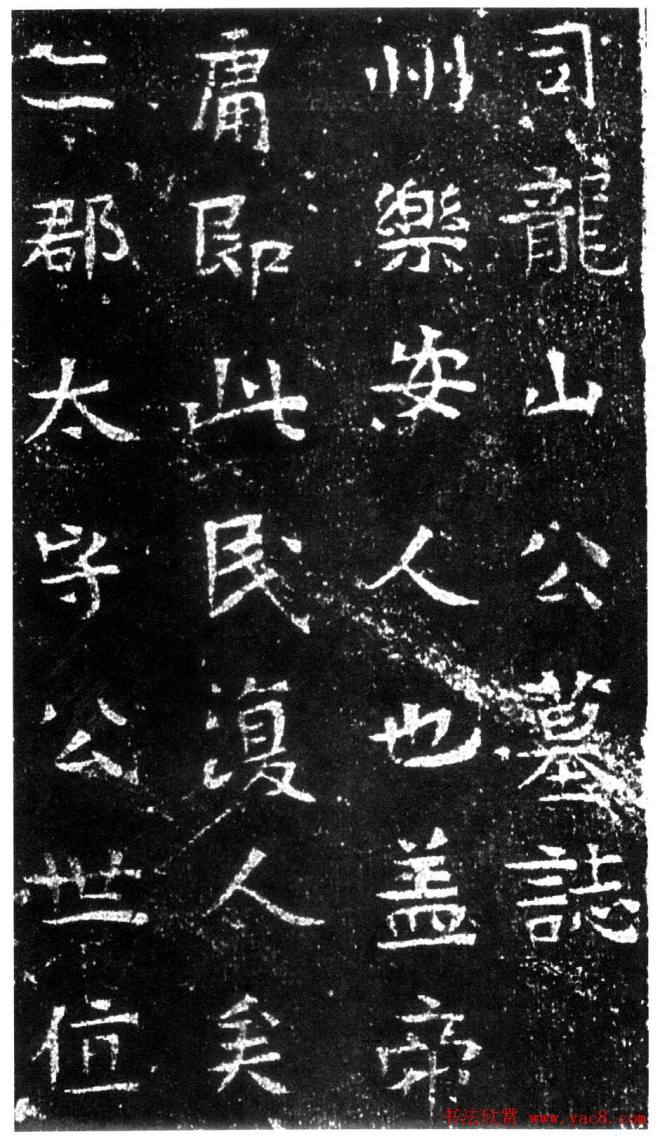 司龍山公墓誌
州樂安人也盖帝
庸即此民復人矣
二郡太守公世位
书法欣赏 www.yac8.com